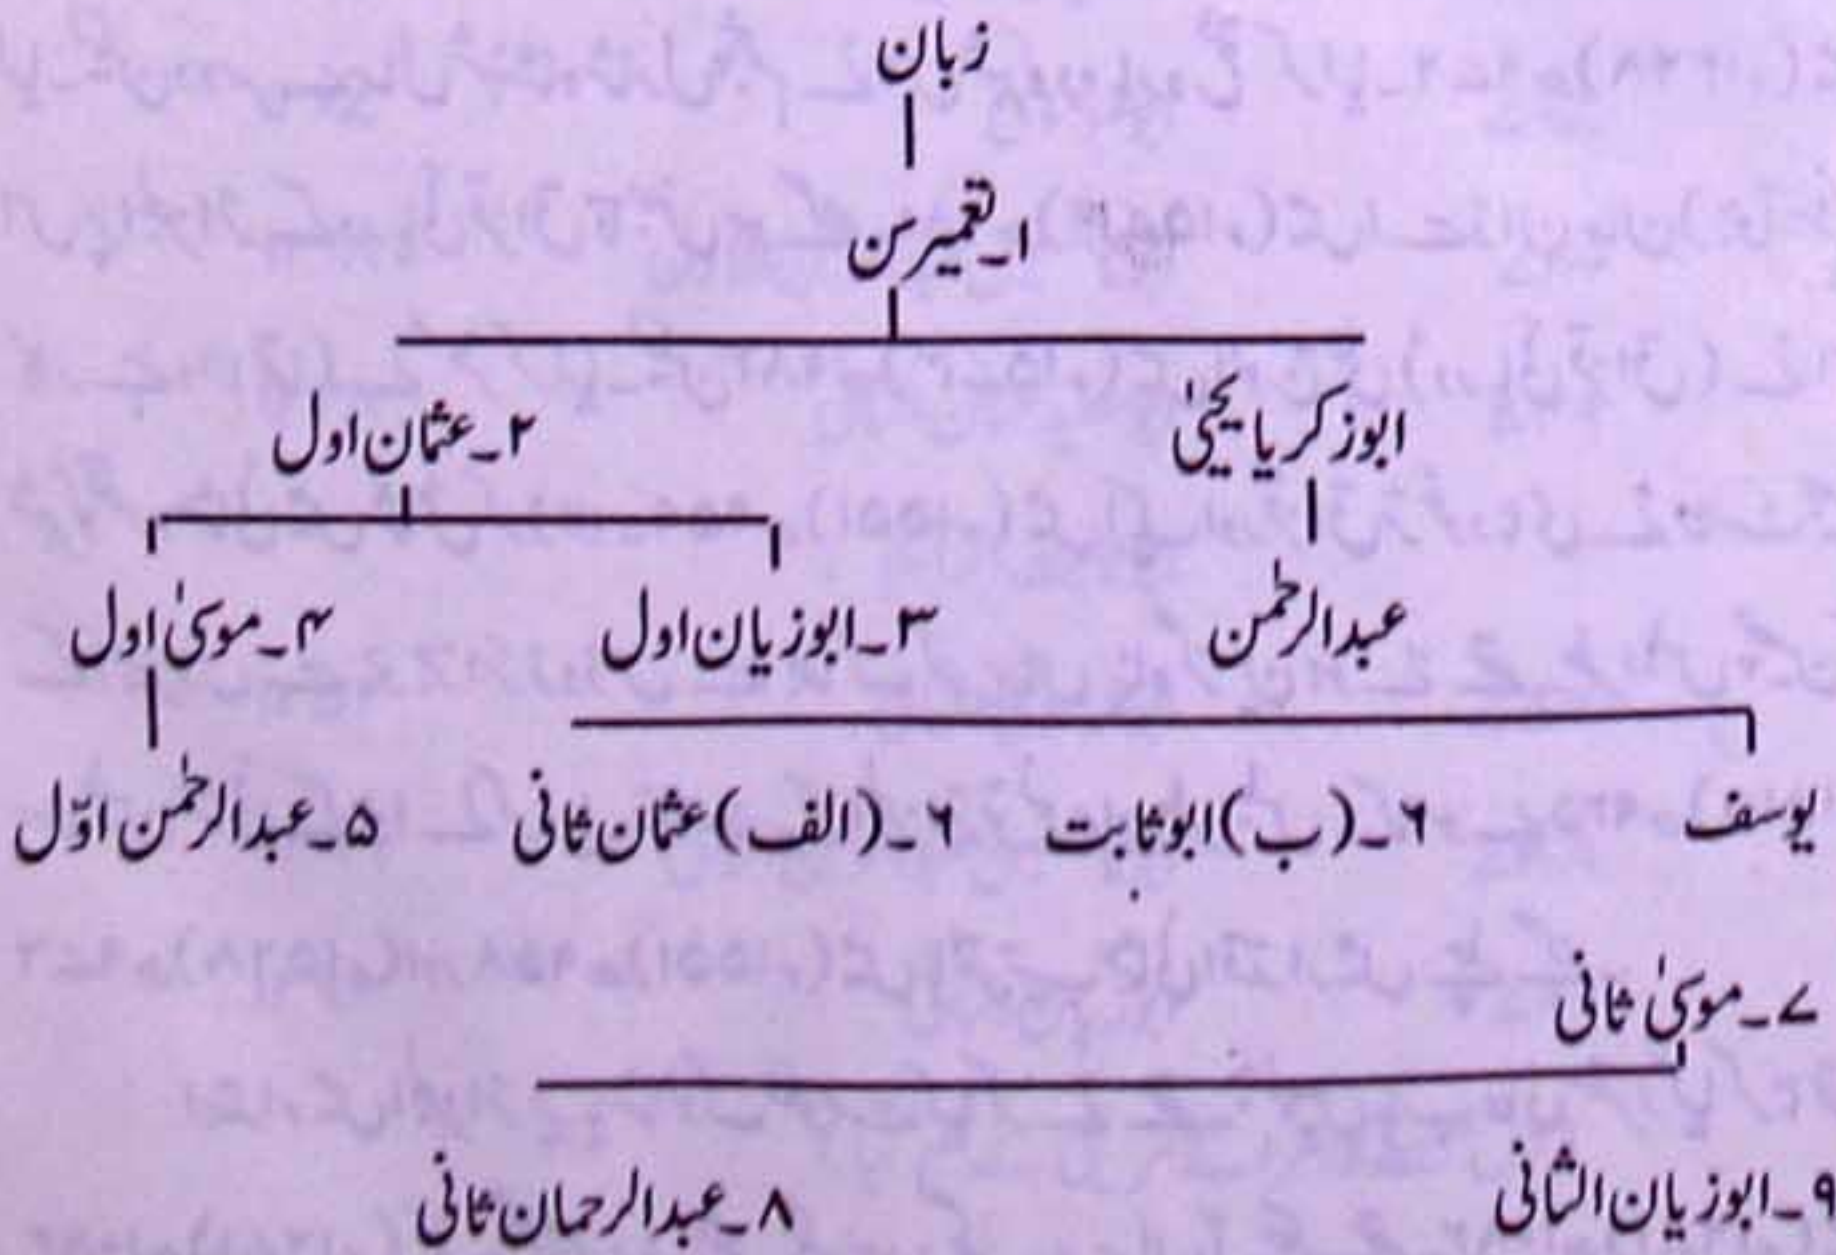 زبان
۱۔تعمیرسن
ابوزکریا یحییٰ ۲۔عثمان اول
عبدالرحمٰن ۳۔ابوزیان اول ۴۔موسیٰ اول
یوسف ۶۔(ب)ابوثابت ۶۔(الف)عثمان ثانی ۵۔عبدالرحمٰن اوّل
۷۔موسیٰ ثانی
۹۔ابوزیان الثانی ۸۔عبدالرحمان ثانی